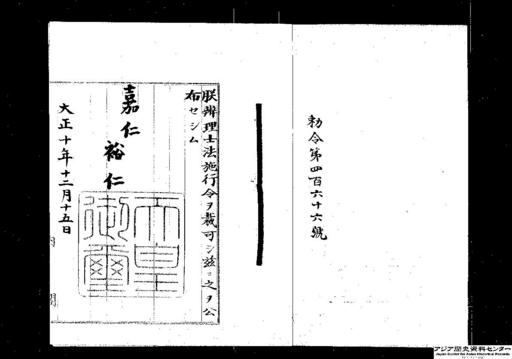 勅令第四百六十六號
朕辨理士法施行令ヲ裁可シ茲ニ之ヲ公
布セシム
嘉仁
裕仁
天皇御璽
大正十年十二月十五日
内閣
アジア歴史資料センター
Japan Center for Asian Historical Records